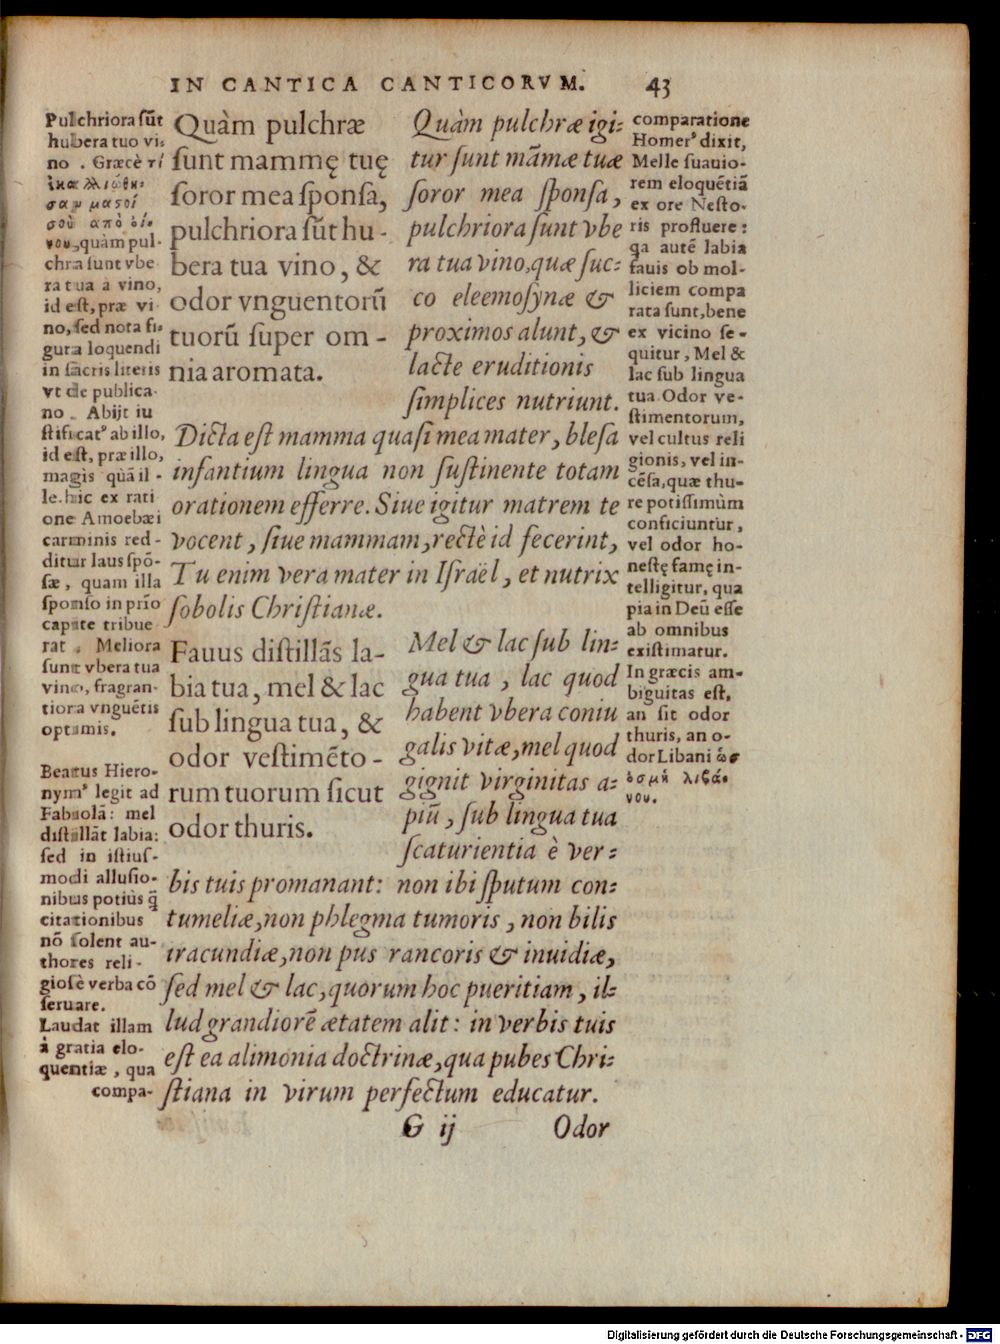 IN CANTICA CANTICORVM. 43
Pulchriora sũt
hubera tuo vi-
no . Græcè τί
ἐκαλλιώθη-
σαν μαστοί
σοῦ ἀπὸ οἴ-
νου, quàm pul-
chra sunt vbe
ra tua à vino,
id est, præ vi
no, sed nota fi-
gura loquendi
in sacris literis
vt de publica-
no . Abijt iu
stificatꝰ ab illo,
id est, præ illo,
magis quã il-
le. hic ex rati
one Amoebæi
carminis red-
ditur laus spõ-
sæ, quam illa
sponso in prĩo
capite tribue
rat . Meliora
sunt vbera tua
vino, fragran-
tiora vnguẽtis
optimis.
Beatus Hiero-
nymꝰ legit ad
Fabiolã: mel
distillãt labia:
sed in istius-
modi allusio-
nibus potiùs q̃
citationibus
nõ solent au-
thores reli-
giosè verba cõ
seruare.
Laudat illam
à gratia elo-
quentiæ, qua
compa-
Quàm pulchræ
sunt mammę tuę
soror mea sponsa,
pulchriora sũt hu-
bera tua vino, &
odor vnguentorũ
tuorũ super om-
nia aromata.
Quàm pulchræ igi-
tur sunt mãmæ tuæ
soror mea sponsa,
pulchriora sunt vbe
ra tua vino, quæ suc-
co eleemosynæ &
proximos alunt, &
lacte eruditionis
simplices nutriunt.
Dicta est mamma quasi mea mater, blesa
infantium lingua non sustinente totam
orationem efferre. Siue igitur matrem te
vocent, siue mammam, rectè id fecerint,
Tu enim vera mater in Israël, et nutrix
sobolis Christianæ.
Fauus distillãs la-
bia tua, mel & lac
sub lingua tua, &
odor vestimẽto-
rum tuorum sicut
odor thuris.
Mel & lac sub lin-
gua tua , lac quod
habent vbera coniu
galis vitæ, mel quod
gignit virginitas a-
piũ, sub lingua tua
scaturientia è ver-
bis tuis promanant: non ibi sputum con-
tumeliæ, non phlegma tumoris , non bilis
iracundiæ, non pus rancoris & inuidiæ,
sed mel & lac, quorum hoc pueritiam, il-
lud grandiorẽ ætatem alit: in verbis tuis
est ea alimonia doctrinæ, qua pubes Chri-
stiana in virum perfectum educatur.
comparatione
Homerꝰ dixit,
Melle suauio-
rem eloquẽtiã
ex ore Nesto-
ris profluere:
q̃a autẽ labia
fauis ob mol-
liciem compa
rata sunt, bene
ex vicino se-
quitur, Mel &
lac sub lingua
tua. Odor ve-
stimentorum,
vel cultus reli
gionis, vel in-
cẽsa, quæ thu-
re potissimùm
conficiuntur,
vel odor ho-
nestę famę in-
telligitur, qua
pia in Deũ esse
ab omnibus
existimatur.
In græcis am-
biguitas est,
an sit odor
thuris, an o-
dor Libani ὡσ
ὀσμὴ λιβά-
νου.
G ij Odor
Digitalisierung gefördert durch die Deutsche Forschungsgemeinschaft - DFG